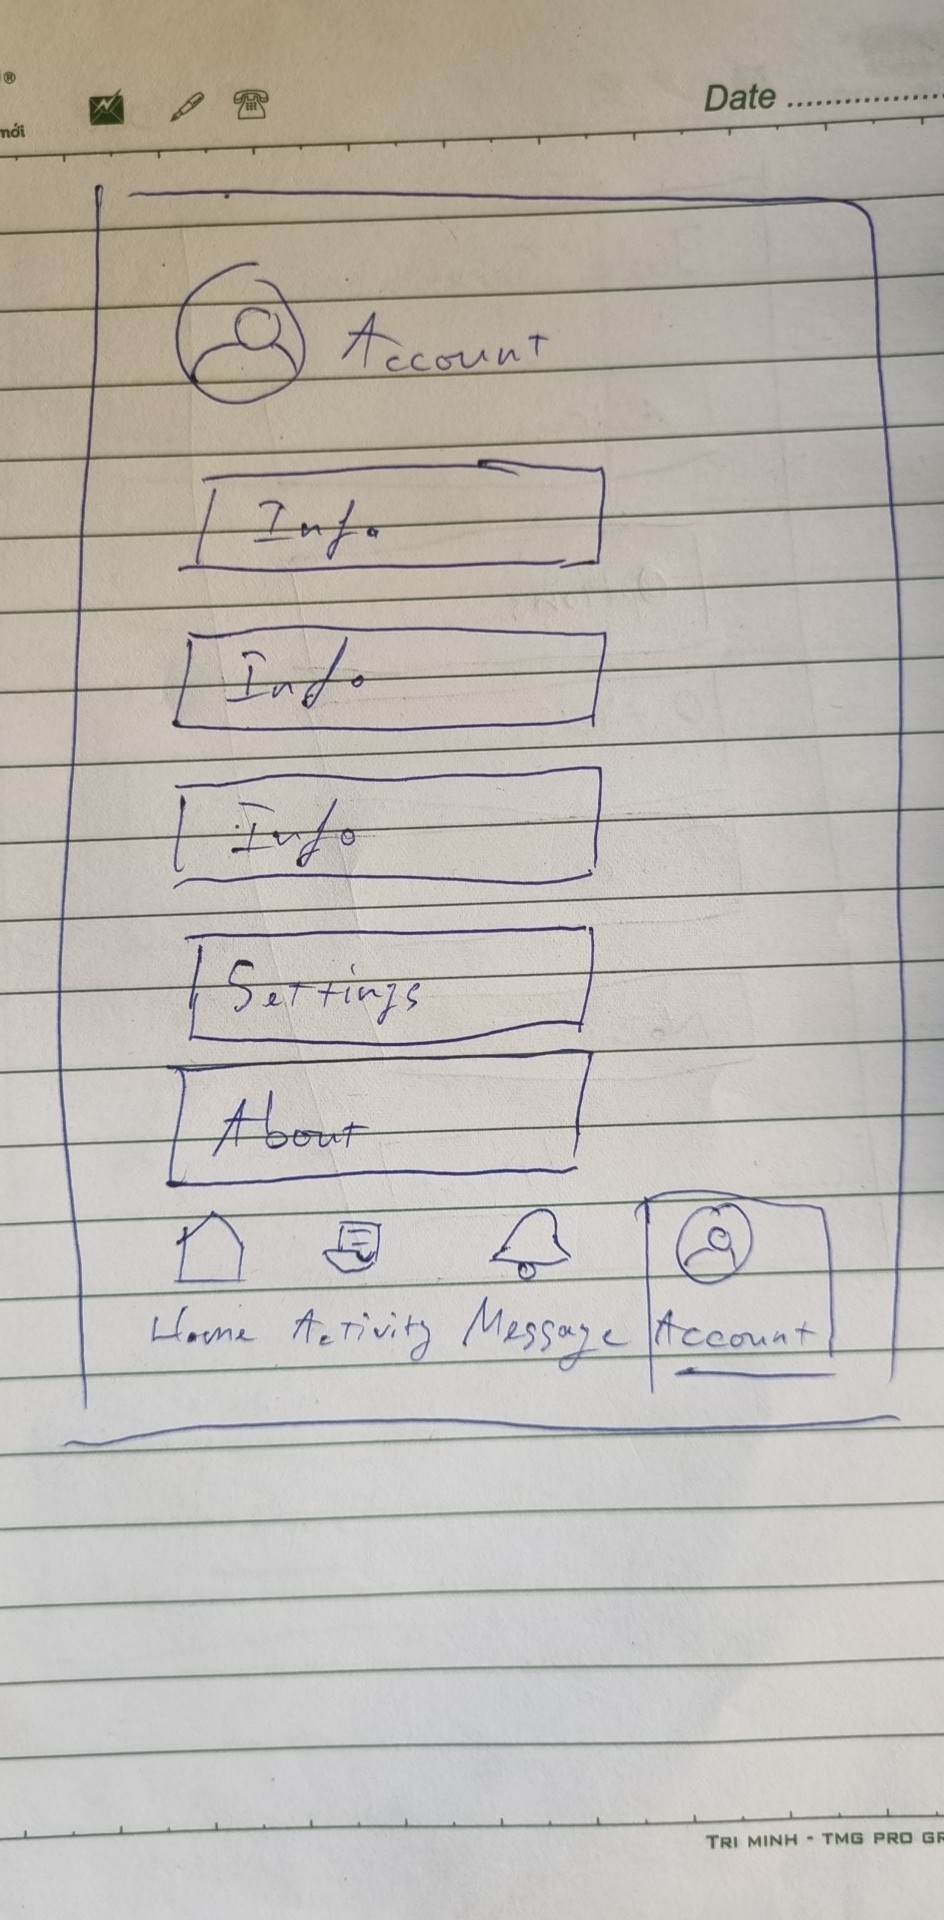 ®
mới
Date
Account
Info
Info
Info
Settings
About
Home Activity Message Account
TRI MINH - TMG PRO GR